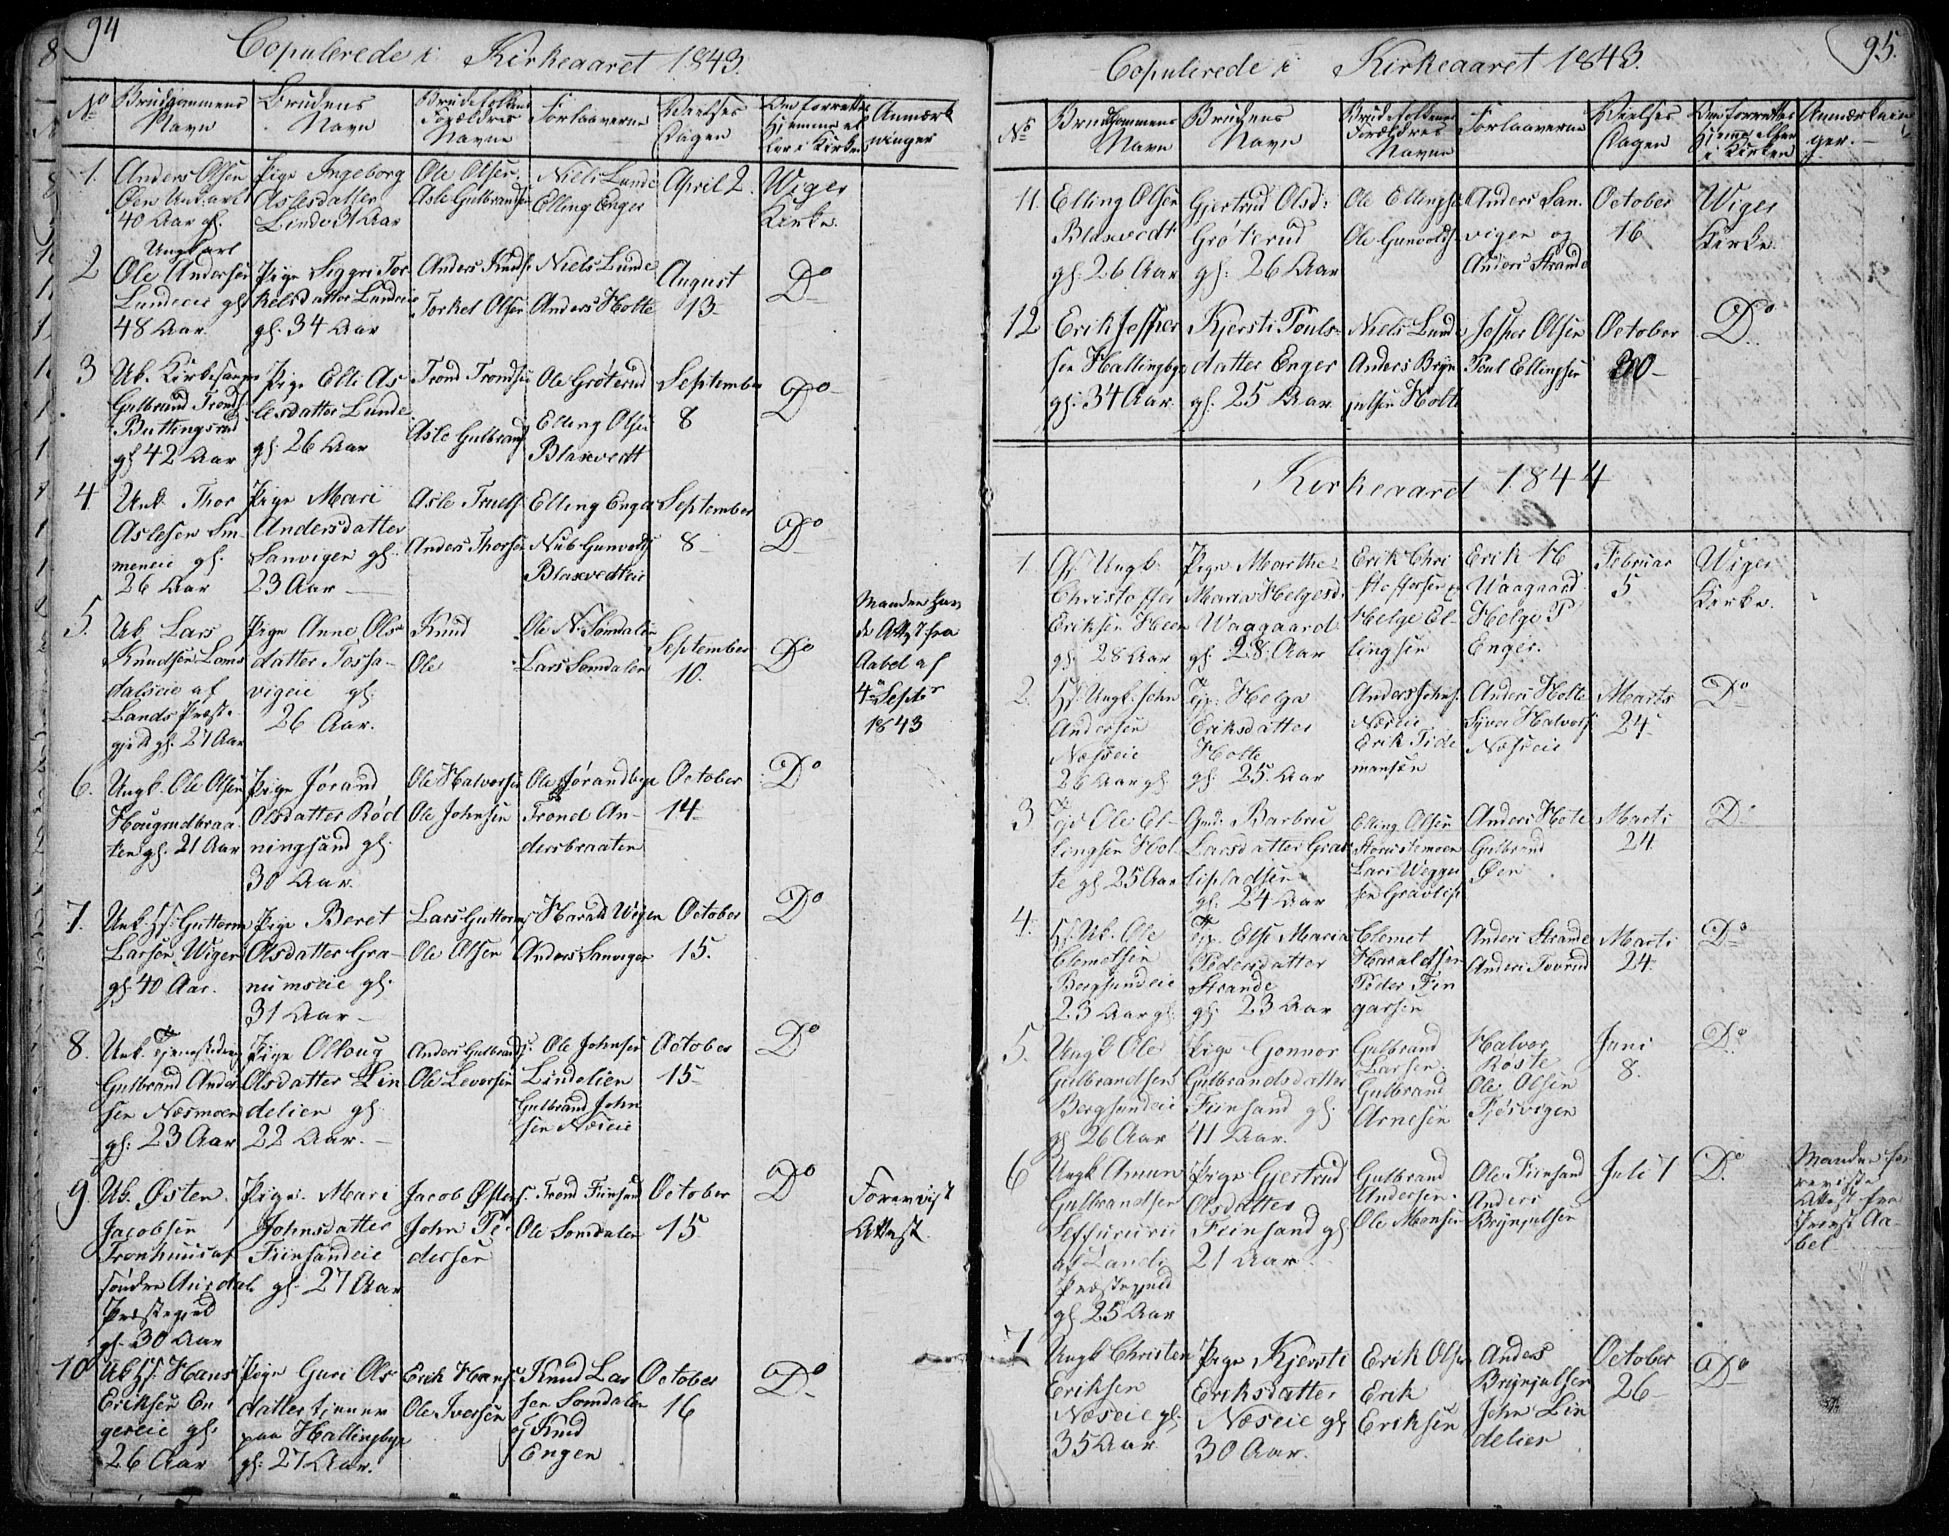 94
Copulerede i Kirkeaaret 1843.
No
Brudgommens Navn
Brudens Navn
Brudefolkenes Forældres Navne
Forlaaverne
Vielses Dagen
Om forrettet Hjemme eller i Kirken
Anmærkninger
1. Anders Olsen
Øen Unkarl
40 Aar gl.
Pige Ingeborg
Aslesdatter
Linde 31 Aar
Ole Olsen.
Asle Gulbrandsen
Niels Lunde
Elling Enger
April 2.
Wiger
Kirke.
2 Ungkarl
Ole Andersen
Lundeeie gl.
48 Aar.
Pige Siggri Tor-
kelsdatter Lundeeie
gl. 34 Aar
Anders Knuds.
Torkel Olsen
Niels Lunde
Anders Holte
August
13-
Do
3 Uk. Kirkesanger
Gulbrand Tronds.
Buttingsrud
gl 42 Aar
Pige Elli As-
lesdatter Lunde
gl. 26 Aar
Trond Trondsen
Asle Gulbrands.
Ole Gröterud
Elling Olsen
Blaxvedt
September
8
Do
4 Unk. Thor
Aslesen Sm-
meneie gl.
26 Aar
Pige Mari
Andersdatter
Sanvigen gl.
23 Aar
Asle Truels.
Anders Thorsen
Elling Enger
Nub Gunvolds.
Blaxvedteie
September
8-
Do
5. Uk Lars
Knudsen Lams-
dalseie af
Lands Præste-
gjeld gl. 27 Aar
Pige Anne Ols-
datter Tossa-
vigeie gl.
26 Aar.
Knud
Ole
Ole N. Somdalen
Lars Somdalen
September
10.
Do
Manden hav-
de Attest fra
Aabel af
4de Septbr
1843
6. Ungk. Ole Olsen
Hougrudbraa-
ten gl. 21 Aar
Pige Jörand
Olsdatter Röd-
ningsand gl.
30 Aar.
Ole Halvorsen
Ole Johnsen
Ole Jörandbye
Trond An-
dersbraaten
October
14-
Do
7. Unk Hs. Guttorm
Larsen Wiger
gl. 40 Aar.
Pige Beret
Olsdatter Gra-
numseie gl.
31 Aar-
Lars Guttorms.
Ole Olsen
Harald Wigen
Anders Sanvigen
October
15.
Do
8. Unk. Tjenestedreng
Gulbrand Ander-
sen Næsmoen
gl. 23 Aar
Pige Olloug
Olsdatter Lin-
delien gl.
22 Aar.-
Anders Gulbrands.
Ole Leversen
Ole Johnsen
Lindelien
Gulbrand John-
sen Næseie
October
15-
Do
9. Uk. Østen
Jacobsen
Tronhuus af
söndre Aurdals
Præstegjeld
gl. 30 Aar
Pige. Mari
Johnsdatter
Fiinsandeie
gl. 27 Aar
Jacob Østens.
John Pe-
dersen
Trond Fiinsand
Ole Somdalen
October
15
Do
Foreviist
Attest.
10 Uk Hs. Hans
Eriksen En-
gereie gl.
26 Aar
Pige Guri Ols-
datter tjener
paa Hallingbye
gl. 27 Aar.
Erik Hans.
Ole Iversen
Knud Lar-
sen Somdalen
og Knud
Engen
October
16
Do
95.
Copulerede i Kirkeaaret 1843.
No
Brudgommens Navn
Brudens Navn
Brudefolkenes Forældres Navne
Forlaaverne
Vielses Dagen
Om forrettet Hjemme eller i Kirken
Anmærkninger.
11. Elling Olsen
Blaxvedt
gl. 26 Aar
Gjertrud Olsd:
Gröterud
gl: 26 Aar
Ole Ellings.
Ole Gunvolds.
Anders San-
vigen og
Anders Strande
October
16
Wiger
Kirke.
12 Erik Jesper-
sen Hallingbye
gl. 34 Aar.
Kjersti Pouls-
datter Enger
gl. 25 Aar
Niels Lunde
Anders Bryn-
julsen Holte
Jesper Olsen
Poul Ellingsen
October
20-
Do
Kirkeaaret 1844
1. Gs. Ungk.
Christoffer
Eriksen Heen
gl. 28 Aar
Pige Marthe
Maria Helgesd.
Waagaard
gl. 28 Aar
Erik Chri-
stoffersen
Helge El-
lingsen
Erik H
Waagaard
Helge P
Enger.
Februar
5
Wiger
Kirke.
2. Hs. Ungk. John
Andersen
Næseie
26 Aar gl.
Tjp. Helga
Eriksdatter
Holte
gl. 25 Aar
Anders Johns.
Næseie
Erik Tide-
mansen
Anders Holte
Syver Halvors.
Næseie
Marts
24-
Do
3 Tjd Ole El-
lingsen Hol-
te gl. 25 Aar
Gmd. Barbra
Larsdatter Grav-
lipladsen
gl. 24 Aar
Elling Olsen
Storristemoen
Lars Wegger-
sen Gravlip.
Anders Hote
Gulbrand
Øen
Marts
24.
Do
4. Hs. Uk. Ole
Clemetsen
Bergsundeie
23 Aar gl.
Tjp. Else Maria
Pedersdatter
Strande
gl. 23 Aar
Clemet
Haraldsen
Peder Fin-
garsen
Anders Strande
Anders Tovrud
Marts
24.
Do
5. Ungk Ole
Gulbrandsen
Bergsundeie
gl. 26 Aar
Pige Gonnor
Gulbrandsdatter
Fiinsand gl.
41 Aar.
Gulbrand
Larsen.
Gulbrand
Arnesen
Halvor
Röste
Ole Olsen
Fjösvigen
Juni
8.
Do
6 Ungk Amun
Gulbrandsen
af Lands
Præstegjeld
gl 25 Aar
Pige Gjertrud
Olsdatter
Fiinsand gl.
21 Aar.
Gulbrand
Andersen.
Ole Monsen
Ole Fiinsand
Anders
Brynjulsen
Juli 7
Do
Manden fo-
reviste
Attest fra
Præst Aa-
bel.
7 Ungk Christen
Eriksen
Næseie gl.
35 Aar
Pige Kjersti
Eriksdatter
Næseie gl.
30 Aar.
Erik Olsen
Erik
Eriksen
Anders
Brynjulsen
John Lin-
delien
October
26-
Do